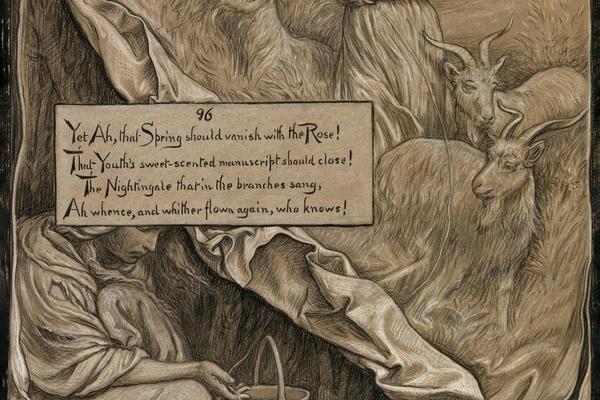 96
Yet Ah, that Spring should vanish with the Rose!
That Youth's sweet-scented manuscript should close!
The Nightingale that in the branches sang,
Ah whence, and whither flown again, who knows!